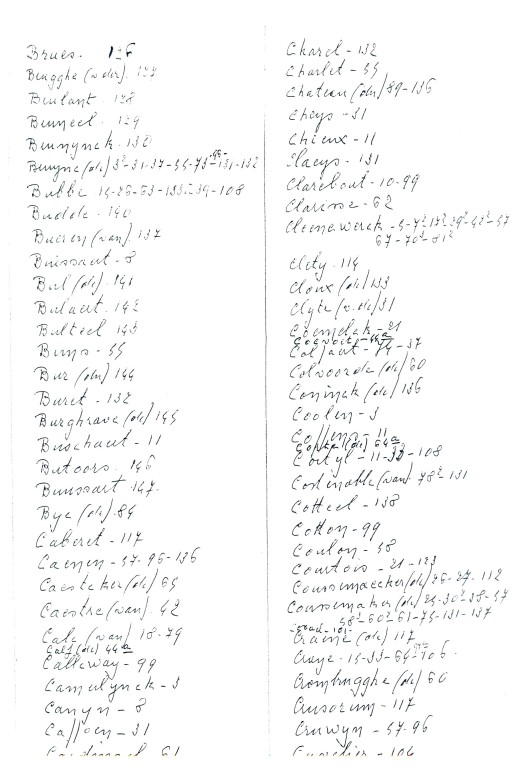 Brues. 126
Brugghe (v der). 127
Brulant. 128
Bruneel. 129
Brunynck. 130
Bruyne (de) 3²-31-37-55-73²-131-132
Bubbe 15-25-53-133-39-108
Budde. 140
Bueren (van). 137
Buissaut-8
Bul (de). 141
Bulaert. 142
Bulteel 143
Buns-55
Bur (den) 144
Buret-132
Burghrave (de) 145
Buschaut-11
Butoors. 146
Buussart 147.
Bye (de). 84
Caberet-117
Caenen-57-96-136
Caesteker (de) 65
Caestre (van) 42
Cale (van) 18-79
Calf (de) 44a
Calleway-99
Camelynck-3
Canyn-8
Caffoen-31
61
Charel-132
Charlet-55
Chateau (du) 89-136
Cheys-31
Chieux-11
Claeys-131
Clarebout-10-99
Clarisse-62
Cleenewerck-5-7²-17²-39²-42²-57
67-70²-81²
Clety. 114
Cloux (de) 133
Clyte (v. de) 31
Coemelck-21
Coljaert-37
Colvoorde (de) 60
Coninck (de) 136
Coolen-3
11
64a
Cortyl-11-108
Costenoble (van) 78²-131
Cotteel-138
Cotton-99
Coulon-58
Courtois-21-123
Coussemaecker (de) 26-27-112
Coussemaker (de) 25-30²-38-57
58²-60²-61-75-131-137
Crane (de) 117
Craye-15-33-106.
Crombrugghe (de) 60
Crusorum-117
Cruwyn-57-96
106